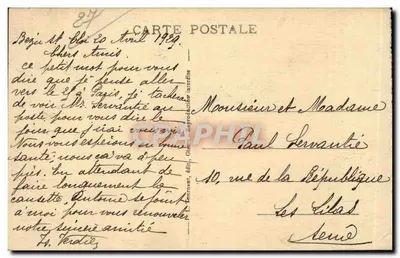 27
CARTE POSTALE
Bezu St Eloi 20 Avril 1929.
Chers Amis.
ce petit mot pour vous
dire que je pense aller
vers le 29 à Paris, je tacherai
de voir Mr. Servantié au
poste pour vous dire le
jour que j'irai
Nous vous espérons en bonne
santé, nous ça va à peu
près. En attendant de
faire longuement la
causette, Antoine se joint
à moi pour vous renouveler
notre sincère amitié
Verdier
Monsieur et Madame
Paul Servantié
10, rue de la République
Les Lilas
Seine